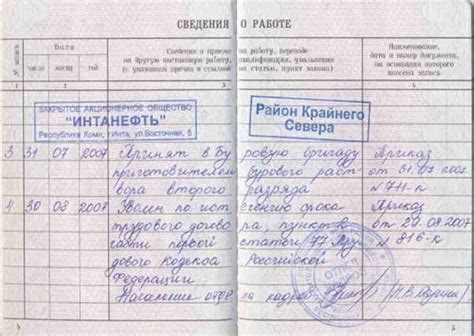 СВЕДЕНИЯ О РАБОТЕ
№ записи
Дата
число
месяц
год
Сведения о приеме на работу, переводе
на другую постоянную работу, квалификации, увольнении
(с указанием причин и ссылкой на статью, пункт закона)
Наименование,
дата и номер документа,
на основании которого
внесена запись
1 2 3 4
ЗАКРЫТОЕ АКЦИОНЕРНОЕ ОБЩЕСТВО
"ИНТАНЕФТЬ"
Республика Коми, г.Инта, ул.Восточная, 5
Район Крайнего
Севера
3 31 07 2007 Принят в буровую бригаду Приказ
приготовителем бурового раст- от 31.07.2007
вора второго разряда № 711-п
4 30 08 2007 Уволен по истечению срока Приказ
трудового догово ра, пункт от 29.08.2007
статьи 77 № 816-к
дового Кодекса Российской
Федерации
Начальник отдела кадров